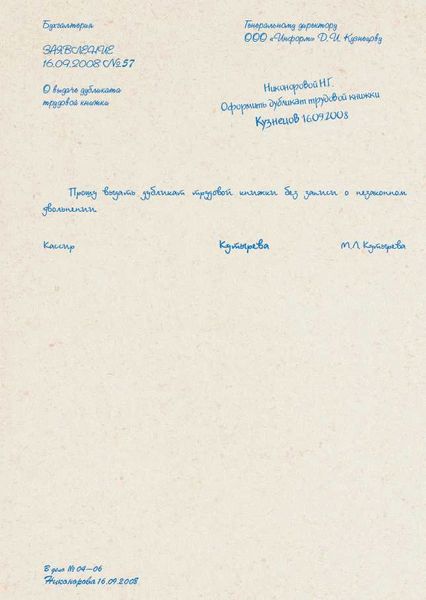 Бухгалтерия
ЗАЯВЛЕНИЕ
16.09.2008 № 57
О выдаче дубликата
трудовой книжки
Генеральному директору
ООО «Информ» Д.И. Кузнецову
Никоноровой Н.Г.
Оформить дубликат трудовой книжки
Кузнецов 16.09.2008
Прошу выдать дубликат трудовой книжки без записи о незаконном
увольнении.
Кассир Кутырева М.Л. Кутырева
В дело № 04—06
Никонорова 16.09.2008